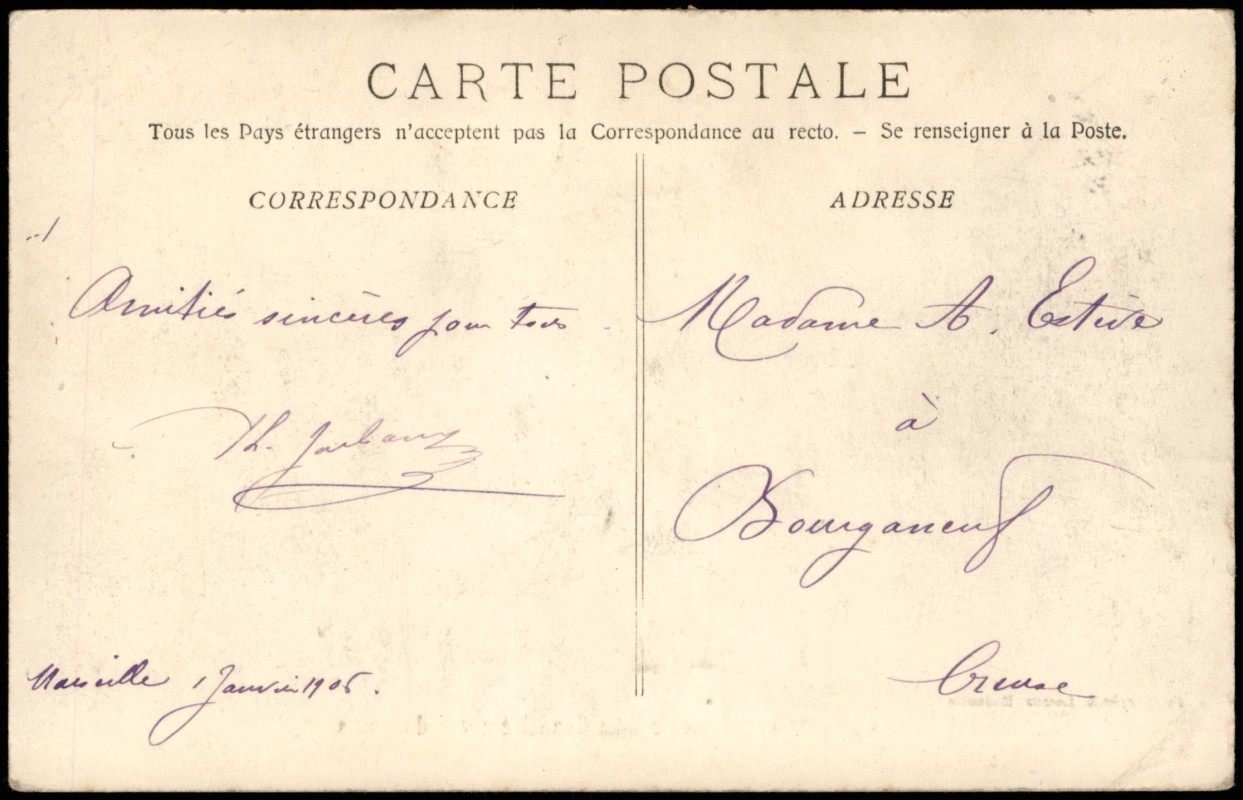 CARTE POSTALE
Tous les Pays étrangers n'acceptent pas la Correspondance au recto. — Se renseigner à la Poste.
CORRESPONDANCE
Amitiés sincères pour tous
Th.
Marseille 1 Janvier
ADRESSE
Madame A. Estève
à
Bourganeuf
Creuse